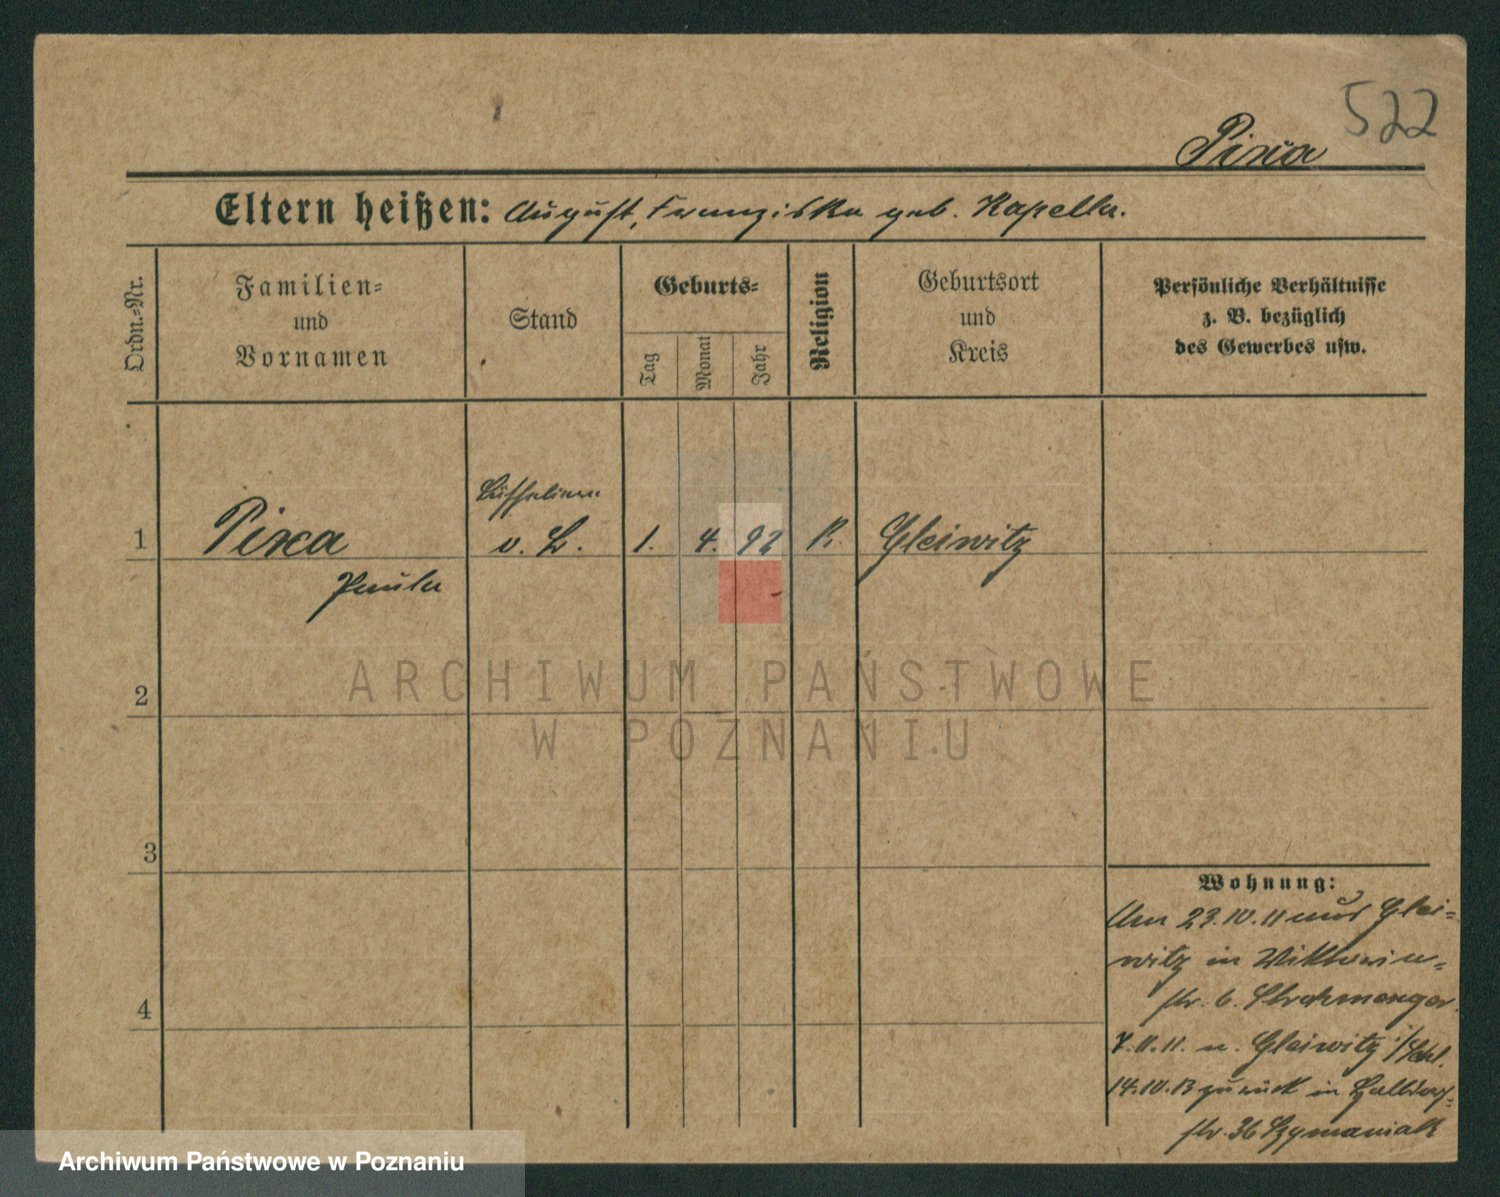 522
Pixa
Eltern heißen: August, Franziska geb. Kapella.
Ordn.-Nr.
Familien-
und
Vornamen
Stand
Geburts-
Tag
Monat
Jahr
Religion
Geburtsort
und
Kreis
Persönliche Verhältnisse
z. B. bezüglich
des Gewerbes usw.
1
Pixa
Paula
v. L.
1. 4. 92
K.
Gleiwitz
2
3
4
Wohnung:
Am 23.10.11 aus Glei-
witz in Viktoria-
str. 6.
7.11.11. n. Gleiwitz i/Schl.
14.10.13 zurück in
str. 36 Szymaniak
ARCHIWUM PAŃSTWOWE
W POZNANIU
Archiwum Państwowe w Poznaniu